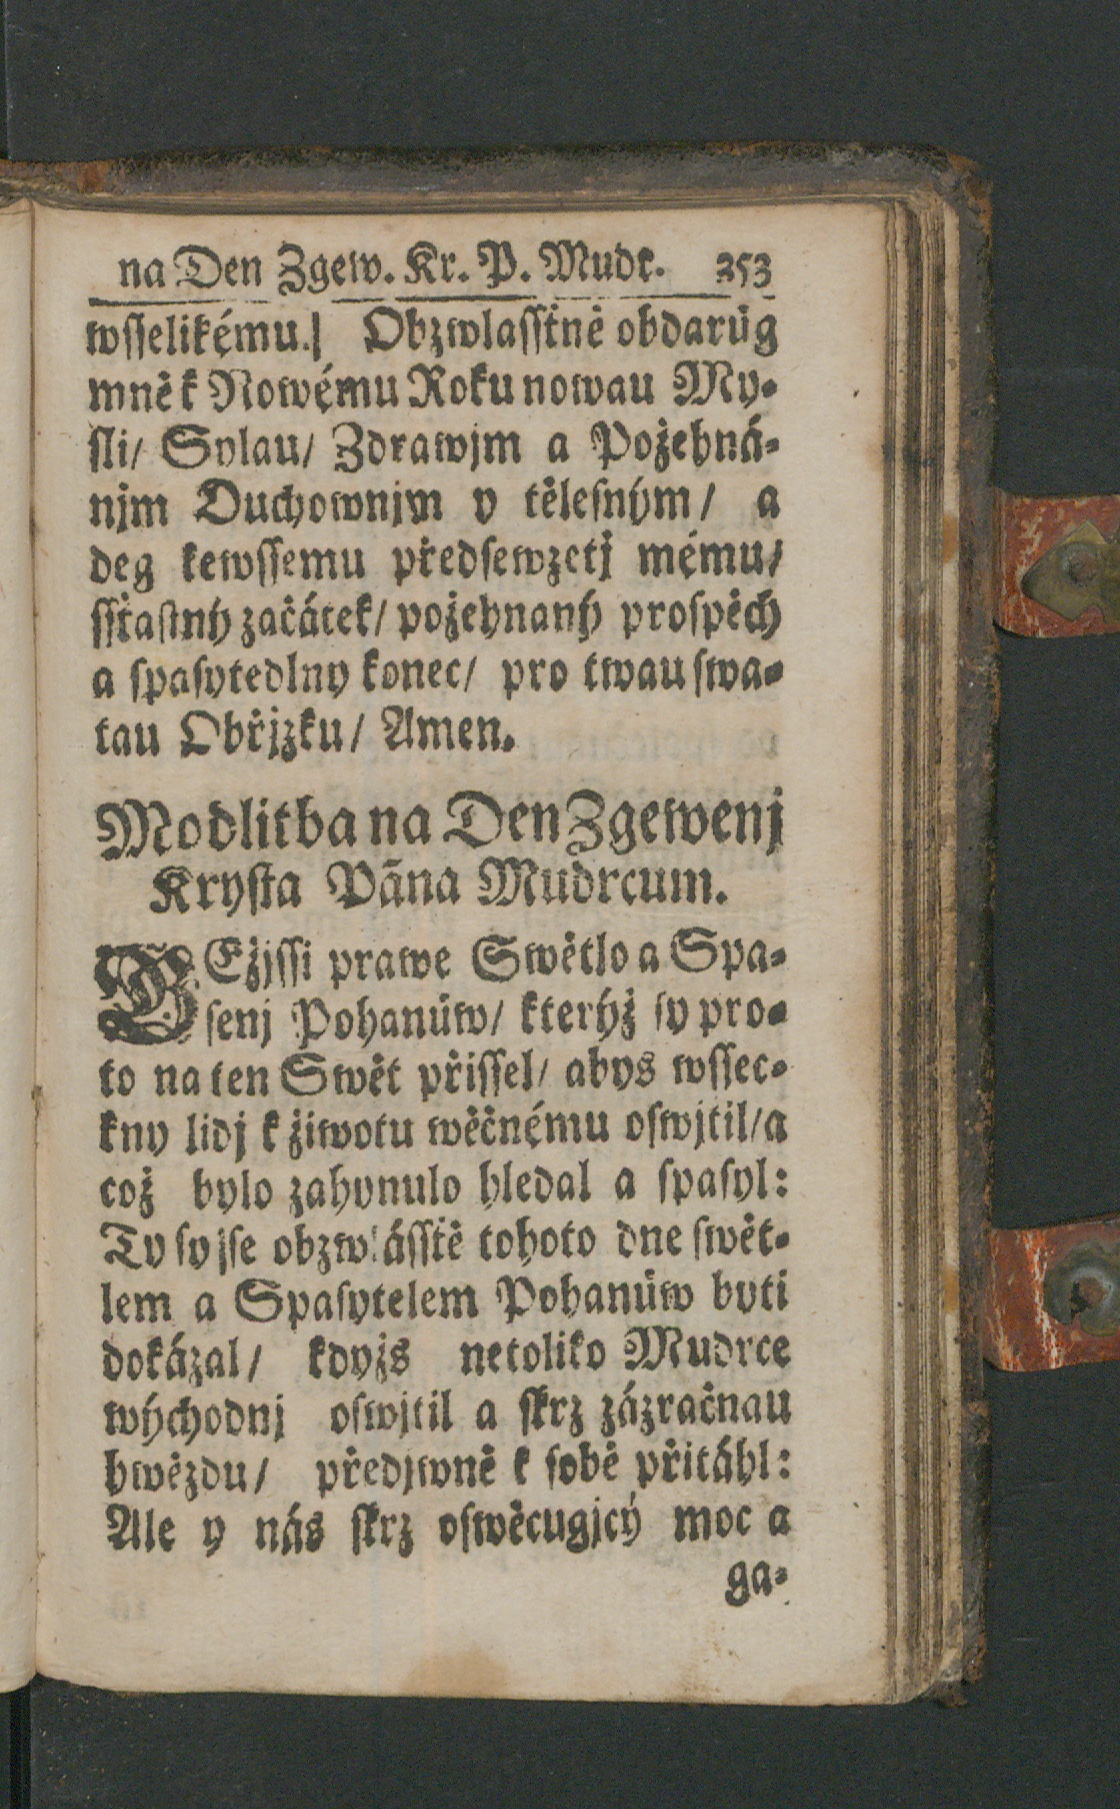 na Den Zgew. Kr. P. Mudr. 353
wsselikému.] Obzwlasstně obdarůg
mně k Nowému Roku nowau My-
sli/ Sylau/ Zdrawjm a Požehná-
njm Duchownjm y tělesným/ a
deg kewssemu předsewzetj mému/
ssťastný začátek/ požehnaný prospěch
a spasytedlny konec/ pro twau swa-
tau Obřjzku/ Amen.
Modlitba na Den Zgewenj
Krysta Pána Mudrcum.
GEžjssi prawe Swětlo a Spa-
senj Pohanůw/ kterýž sy pro-
to na ten Swět přissel/ abys wssec-
kny lidj k žiwotu wěčnému oswjtil/ a
což bylo zahynulo hledal a spasyl:
Ty sy jse obzwlásstě tohoto dne swět-
lem a Spasytelem Pohanůw byti
dokázal/ kdyžs netoliko Mudrce
wýchodnj oswjtil a skrz zázračnau
hwězdu/ předjwně k sobě přitáhl:
Ale y nás skrz oswěcugjcý moc a
ga-